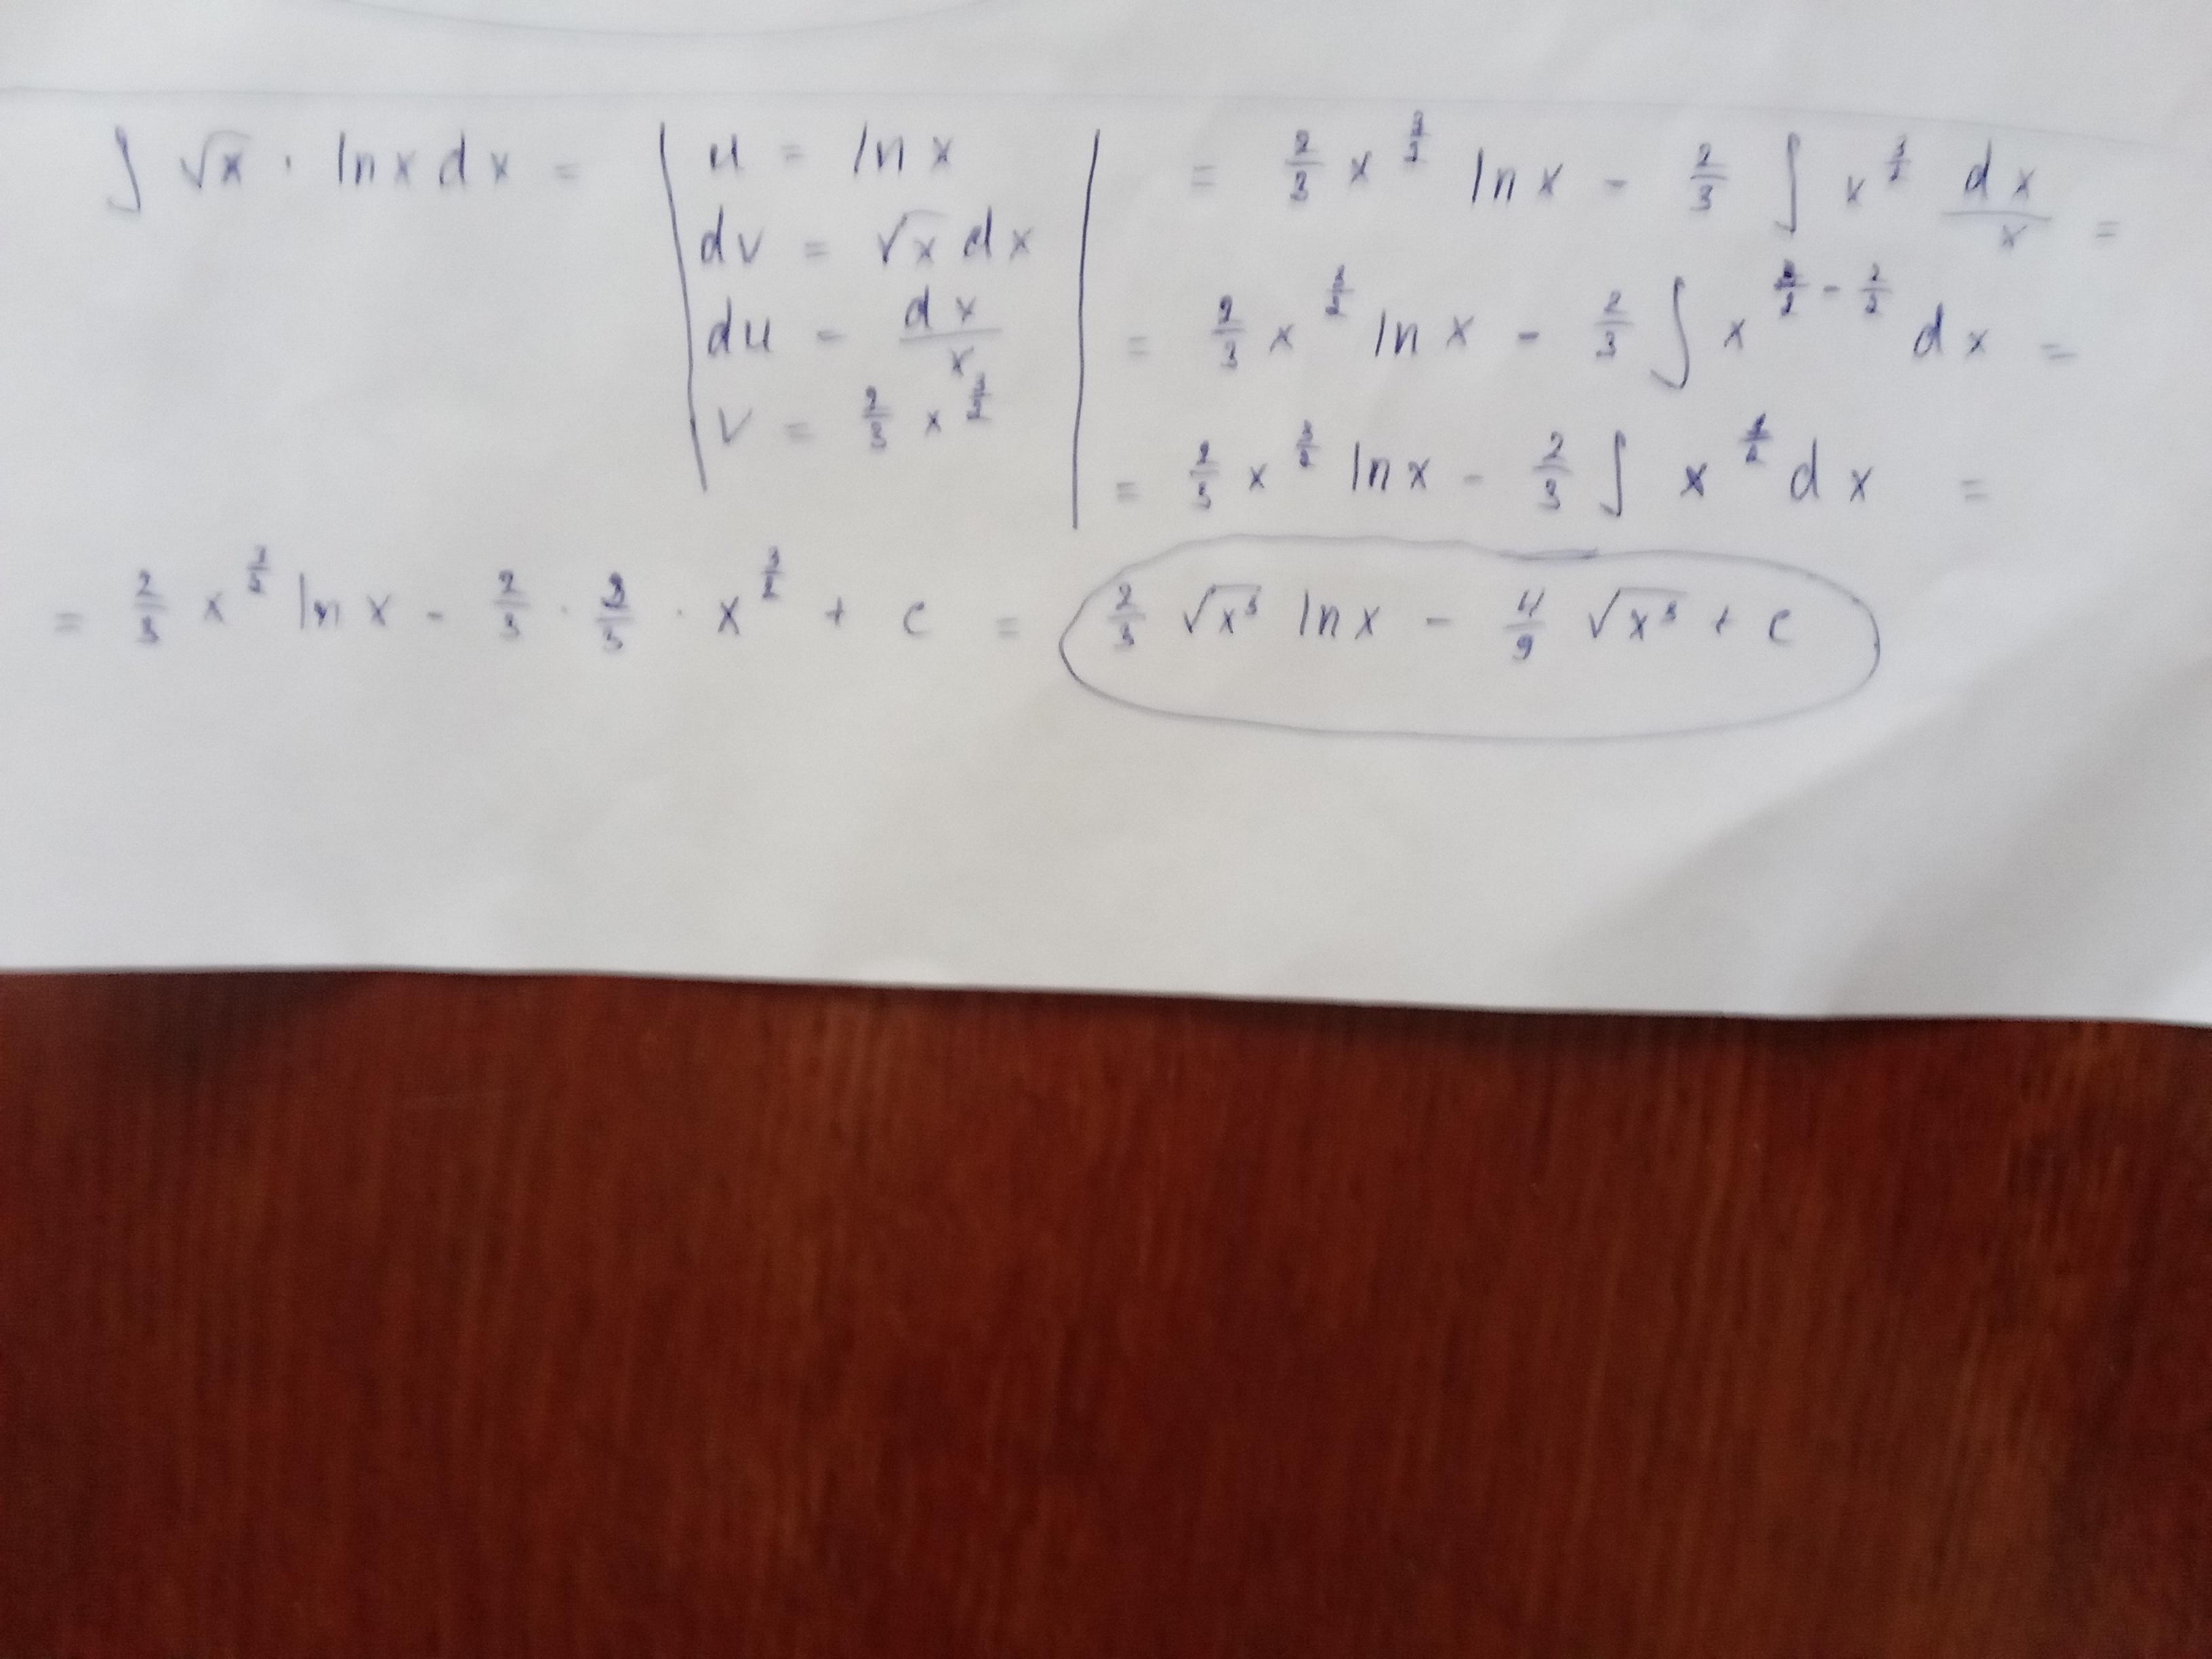 ∫ √x · ln x dx = | u = ln x
dv = √x dx
du = dx/x
v = 2/3 x^(3/2) |
= 2/3 x^(3/2) ln x - 2/3 ∫ x^(3/2) dx/x =
= 2/3 x^(3/2) ln x - 2/3 ∫ x^(3/2 - 2/2) dx =
= 2/3 x^(3/2) ln x - 2/3 ∫ x^(1/2) dx =
= 2/3 x^(3/2) ln x - 2/3 · 2/3 · x^(3/2) + c = 2/3 √x³ ln x - 4/9 √x³ + c